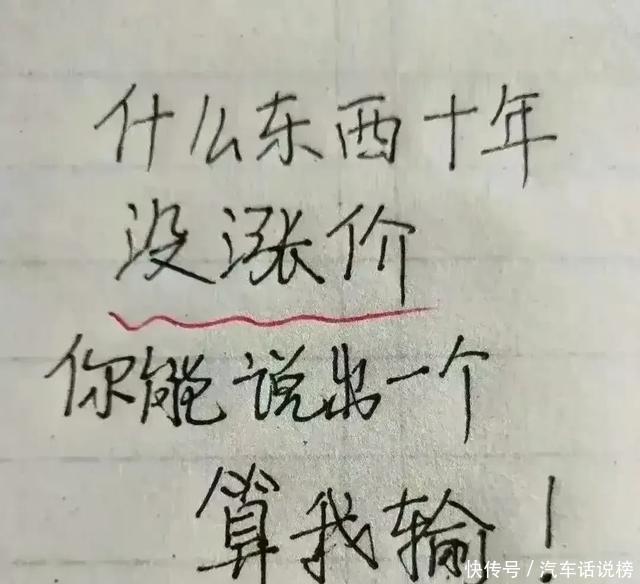 什么东西十年
没涨价
你能说出一个
算我输！
快传号／汽车话说榜